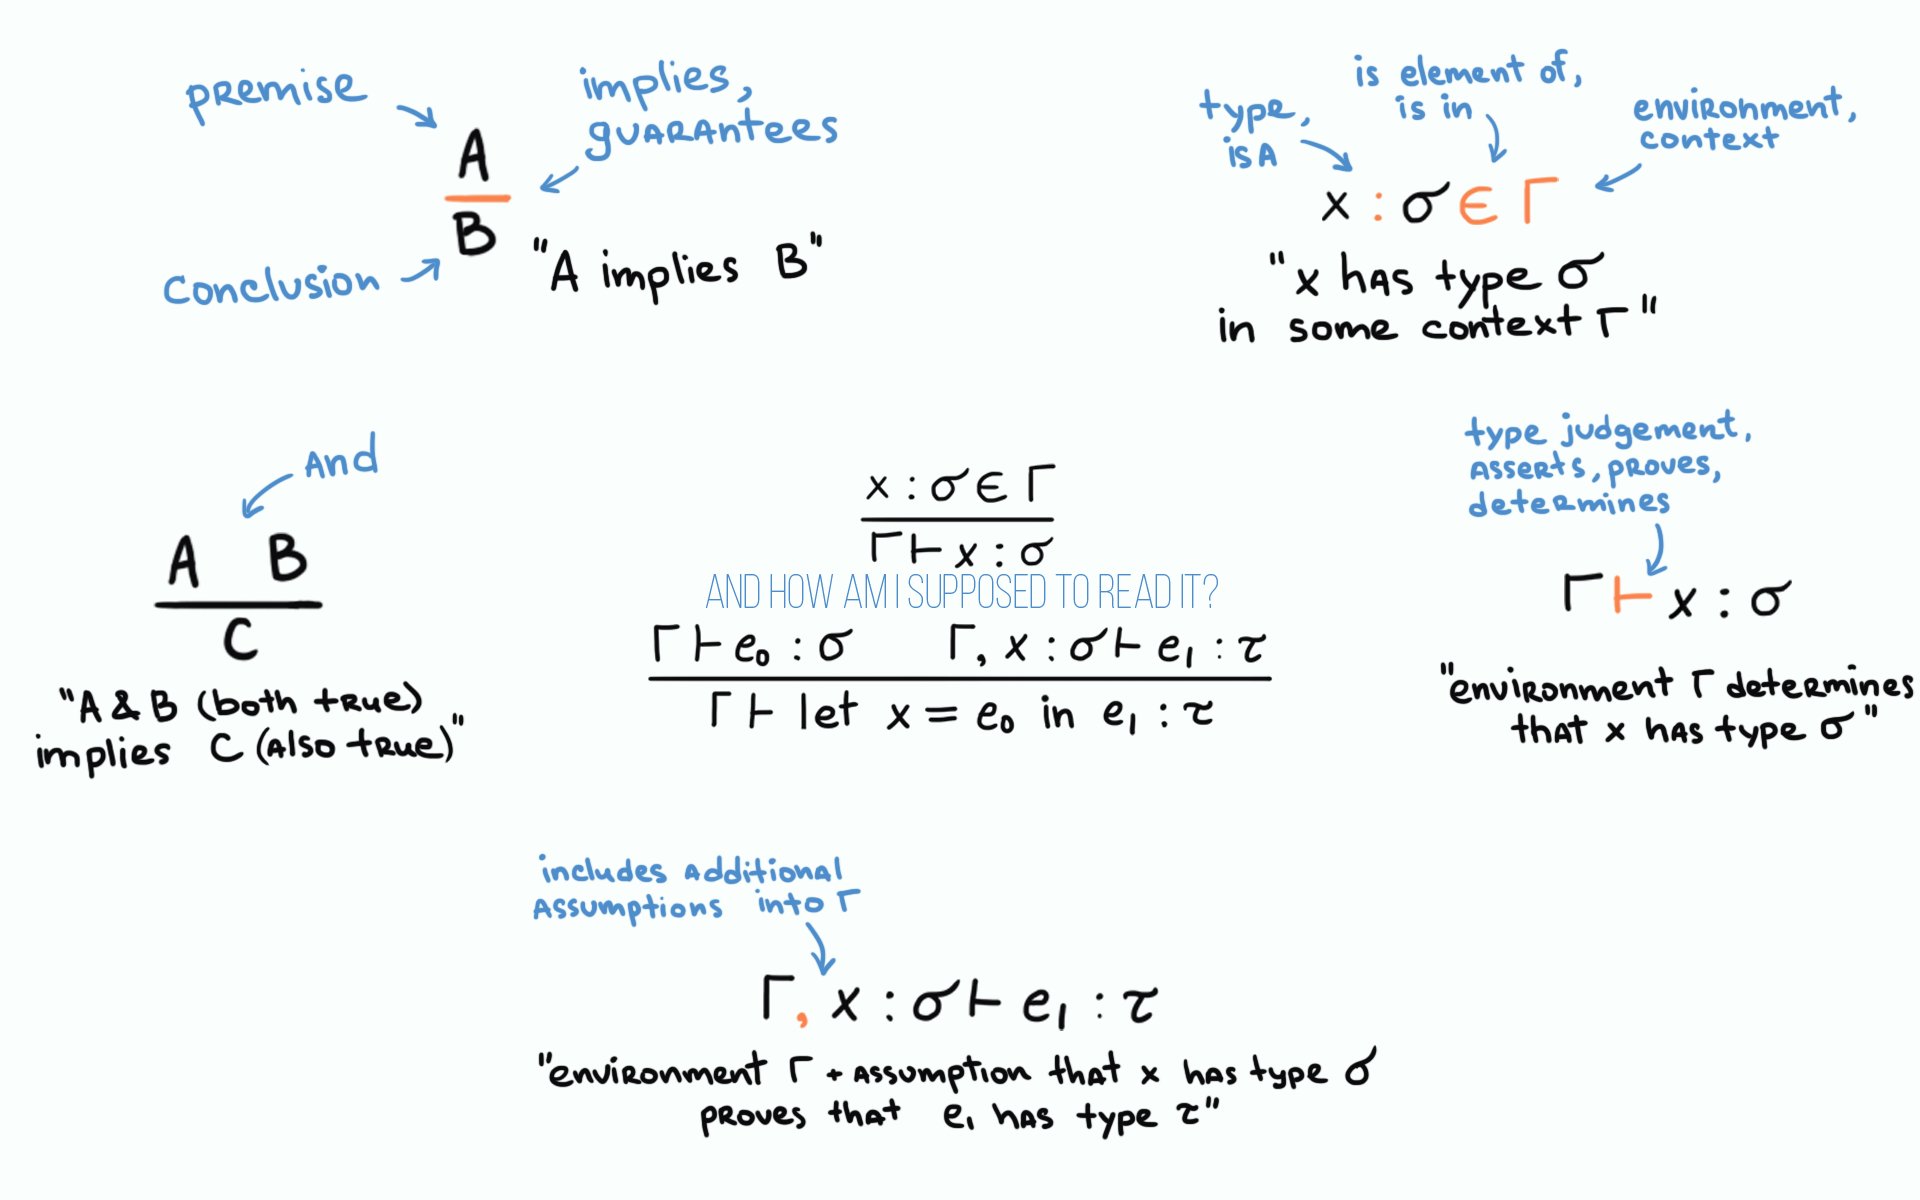 premise
implies,
guarantees
A
B
Conclusion
"A implies B"
type,
is A
is element of,
is in
environment,
context
x : σ ∈ Γ
"x has type σ
in some context Γ"
And
A B
C
"A & B (both true)
implies C (also true)"
x : σ ∈ Γ
Γ ⊢ x : σ
AND HOW AM I SUPPOSED TO READ IT?
Γ ⊢ e₀ : σ Γ, x : σ ⊢ e₁ : τ
Γ ⊢ let x = e₀ in e₁ : τ
type judgement,
asserts, proves,
determines
Γ ⊢ x : σ
"environment Γ determines
that x has type σ"
includes additional
assumptions into Γ
Γ, x : σ ⊢ e₁ : τ
"environment Γ + assumption that x has type σ
proves that e₁ has type τ"